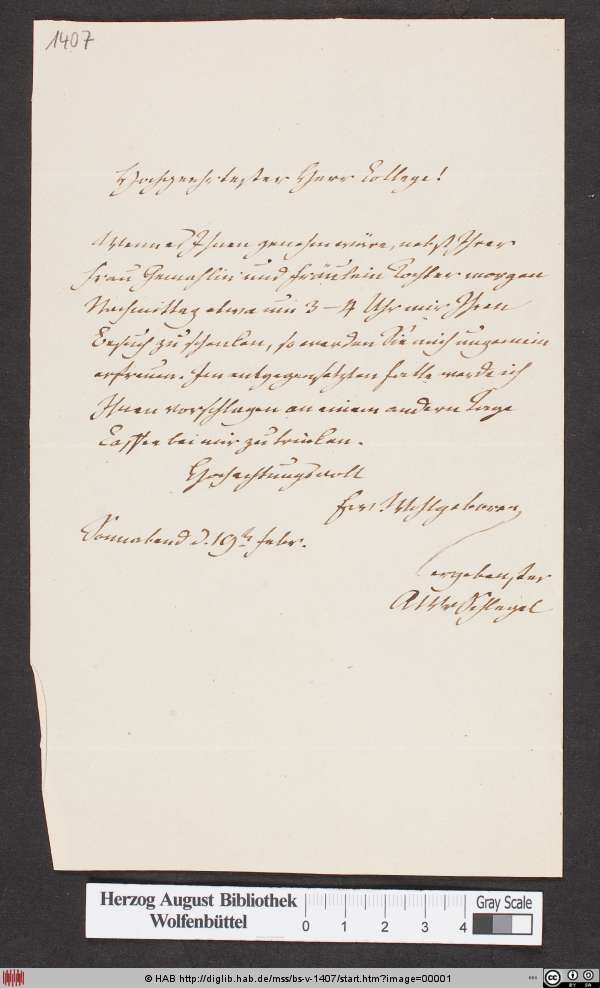 1407
Hochgeehrtester Herr College!
Wenn es Ihnen genehm wäre, nebst Ihrer
Frau Gemahlin und Fräulein Tochter morgen
Nachmittag etwa um 3–4 Uhr mir Ihren
Besuch zu schenken, so werden Sie mich ungemein
erfreun. Im entgegensetzten Falle werde ich
Ihnen vorschlagen an einem andern Tage
Caffee bei mir zu trinken.
Hochachtungsvoll
Ew. Wohlgeboren
Sonnabend d. 19ten Febr.
ergebenster
AWvSchlegel
Herzog August Bibliothek
Wolfenbüttel
0 1 2 3 4
Gray Scale
© HAB http://diglib.hab.de/mss/bs-v-1407/start.htm?image=00001
BY SA